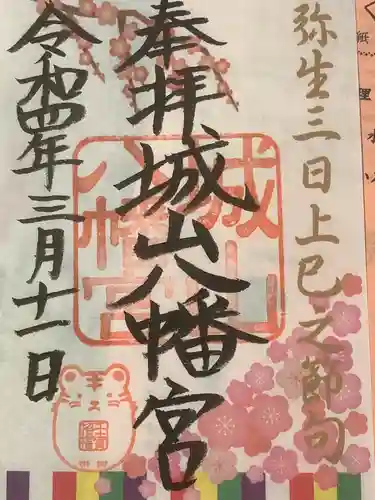 弥生三日上巳之節句
奉拝城山八幡宮
令和四年三月十一日
城山
八幡宮